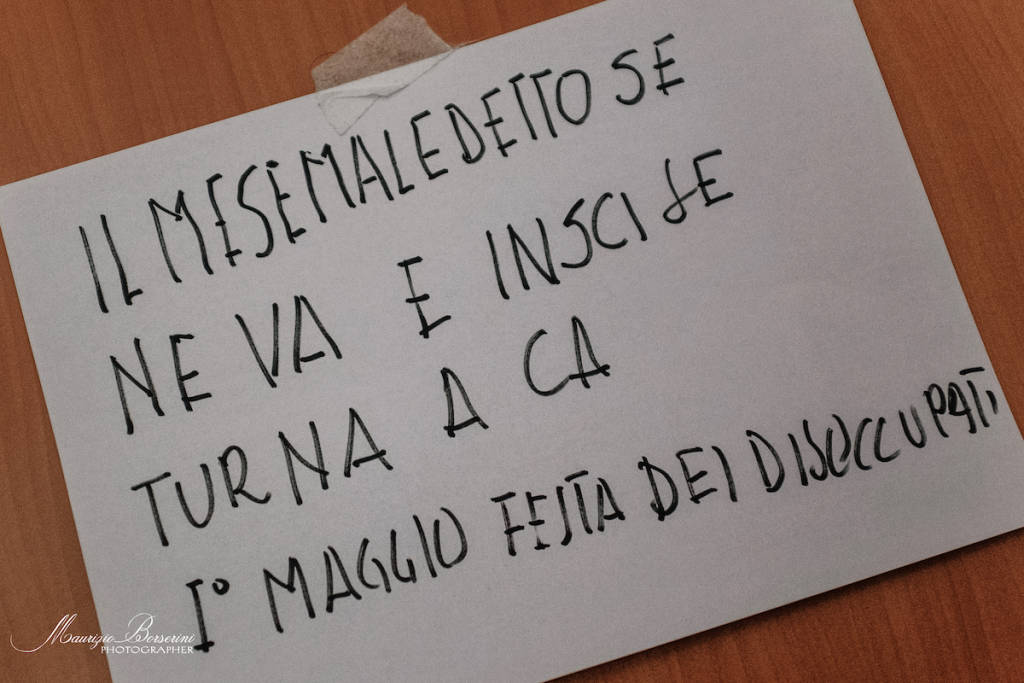 IL MESE MALEDETTO SE
NE VA E INSCI SE
TURNA A CA
I° MAGGIO FESTA DEI DISOCCUPATI
Maurizio Borserini
PHOTOGRAPHER